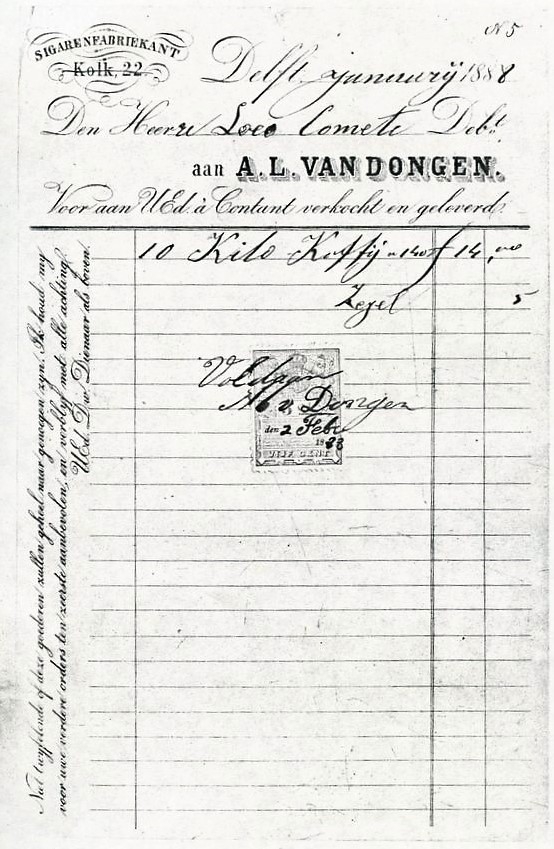 N 5
SIGARENFABRIEKANT
Kolk, 22.
Delft, januarij 1888
Den Heere Loeo Comete Debt.
aan A. L. VAN DONGEN.
Voor aan UEd. à Contant verkocht en geleverd.
10 Kilo Koffij a 140 f 14,00
Zegel 5
Voldaan
v. Dongen
den 2 Feb
1888
VIJF CENT
Niet twijfelende of deze goederen zullen geheel naar genoegen zijn. Ik houd mij
voor uwe verdere orders ten zeerste aanbevolen, en verblijf met alle achting
UEd. Dw. Dienaar als boven.